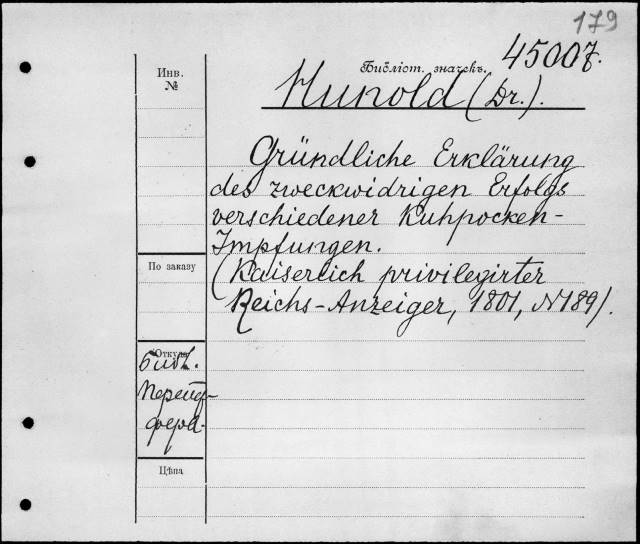 179
45007.
Библіот. значекъ.
Инв.
№
Hunold (Dr.).
Gründliche Erklärung
des zweckwidrigen Erfolgs
verschiedener Kuhpocken-
Impfungen.
(Kaiserlich privilegirter
Reichs-Anzeiger, 1801, N189).
По заказу
Откуда
библ.
Цѣна